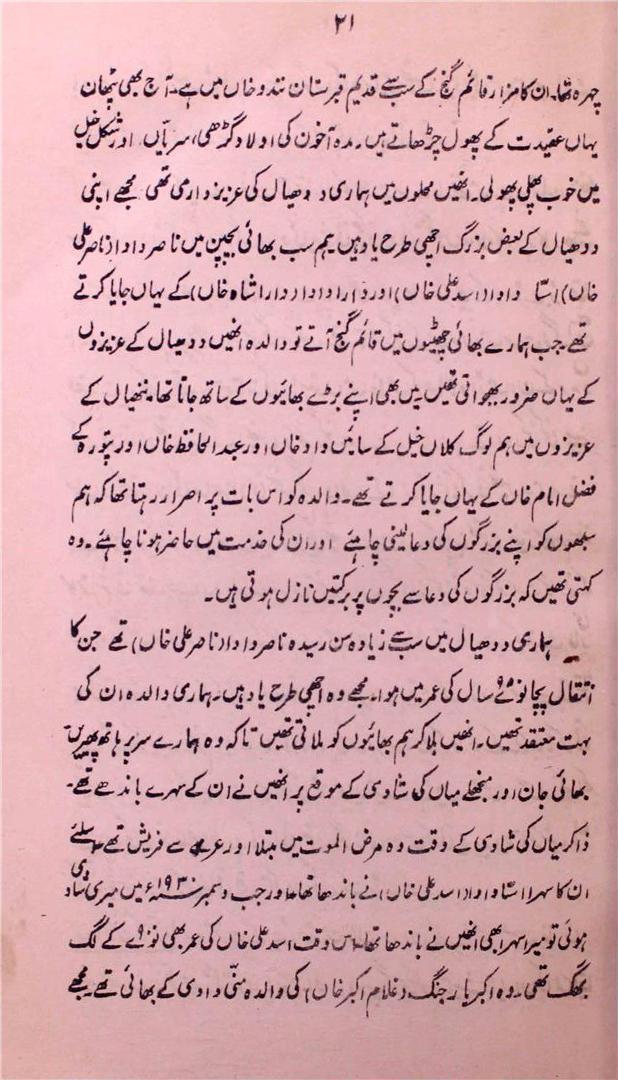 ۲۱
چہرہ تھا۔ ان کا مزار قائم گنج کے سب سے قدیم قبرستان تندو خاں میں ہے۔ آج بھی پٹھان
یہاں عقیدت کے پھول چڑھاتے ہیں۔ مدہ آخون کی اولاد گڑھی، سریاں، اور شکل خیل
میں خوب پھلی پھولی۔ انھیں محلوں میں ہماری ددھیال کی عزیزداری تھی مجھے اپنی
ددھیال کے بعض بزرگ اچھی طرح یاد ہیں۔ ہم سب بھائی بچپن میں ناصر دادا (ناصر علی
خاں) استا دادا (اسد علی خاں) اور دارا دادا (دارا شاہ خاں) کے یہاں جایا کرتے
تھے۔ جب ہمارے بھائی چھٹیوں میں قائم گنج آتے تو والدہ انھیں ددھیال کے عزیزوں
کے یہاں ضرور بھجواتی تھیں۔ میں بھی اپنے بڑے بھائیوں کے ساتھ جاتا تھا۔ ننھیال کے
عزیزوں میں ہم لوگ کلاں خیل کے سائیں داد خاں اور عبدالحافظ خاں اور پتورہ کے
فضل امام خاں کے یہاں جایا کرتے تھے۔ والدہ کو اس بات پر اصرار رہتا تھا کہ ہم
سبھوں کو اپنے بزرگوں کی دعا لینی چاہئے اور ان کی خدمت میں حاضر ہونا چاہئے۔ وہ
کہتی تھیں کہ بزرگوں کی دعا سے بچوں پر برکتیں نازل ہوتی ہیں۔
ہماری ددھیال میں سب سے زیادہ سن رسیدہ ناصر دادا (ناصر علی خاں) تھے جن کا
انتقال پچانوے ۹۵ سال کی عمر میں ہوا۔ مجھے وہ اچھی طرح یاد ہیں۔ ہماری والدہ ان کی
بہت معتقد تھیں۔ انھیں بلا کر ہم بھائیوں کو ملاتی تھیں تاکہ وہ ہمارے سر پر ہاتھ پھیریں
بھائی جان اور منجھلے میاں کی شادی کے موقع پر انھیں نے ان کے سہرے باندھے تھے۔
ذاکر میاں کی شادی کے وقت وہ مرض الموت میں مبتلا اور عرصہ سے فریش تھے اسلئے
ان کا سہرا استا دادا (اسد علی خاں) نے باندھا تھا۔ اور جب دسمبر ۱۹۳۰ء میں میری شادی
ہوئی تو میرا سہرا بھی انھیں نے باندھا تھا۔ اس وقت اسد علی خاں کی عمر بھی نوے ۹۰ کے لگ
بھگ تھی۔ وہ اکبر یار جنگ (غلام اکبر خاں) کی والدہ منّی دادی کے بھائی تھے۔ مجھے